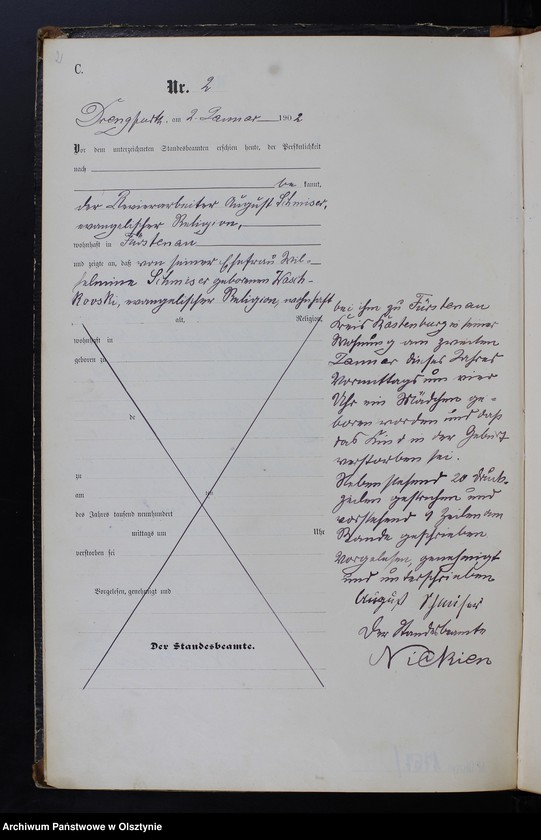 2
C.
Nr. 2
Drengfurth, am 2. Januar 1902
Vor dem unterzeichneten Standesbeamten erschien heute, der Persönlichkeit
nach
be kannt,
der Revierarbeiter August Schmiser,
evangelischer Religion,
wohnhaft in Fürstenau
und zeigte an, daß von seiner Ehefrau Wil-
helmine Schmiser geborenen Wasch-
kovski, evangelischer Religion, wohnhaft
alt, Religion,
wohnhaft in
geboren zu
de
zu
am
des Jahres tausend neunhundert
mittags um Uhr
verstorben sei
Vorgelesen, genehmigt und
Der Standesbeamte.
bei ihm zu Fürstenau
Kreis Rastenburg in seiner
Wohnung am zweiten
Januar dieses Jahres
Vormittags um vier
Uhr ein Mädchen ge-
boren worden und daß
das Kind in der Geburt
verstorben sei.
Nebenstehend 20 Druck-
zeilen gestrichen und
vorstehend 9 Zeilen am
Rande geschrieben
Vorgelesen, genehmigt
und unterschrieben
August Schmiser
Der Standesbeamte
Nickien
Archiwum Państwowe w Olsztynie